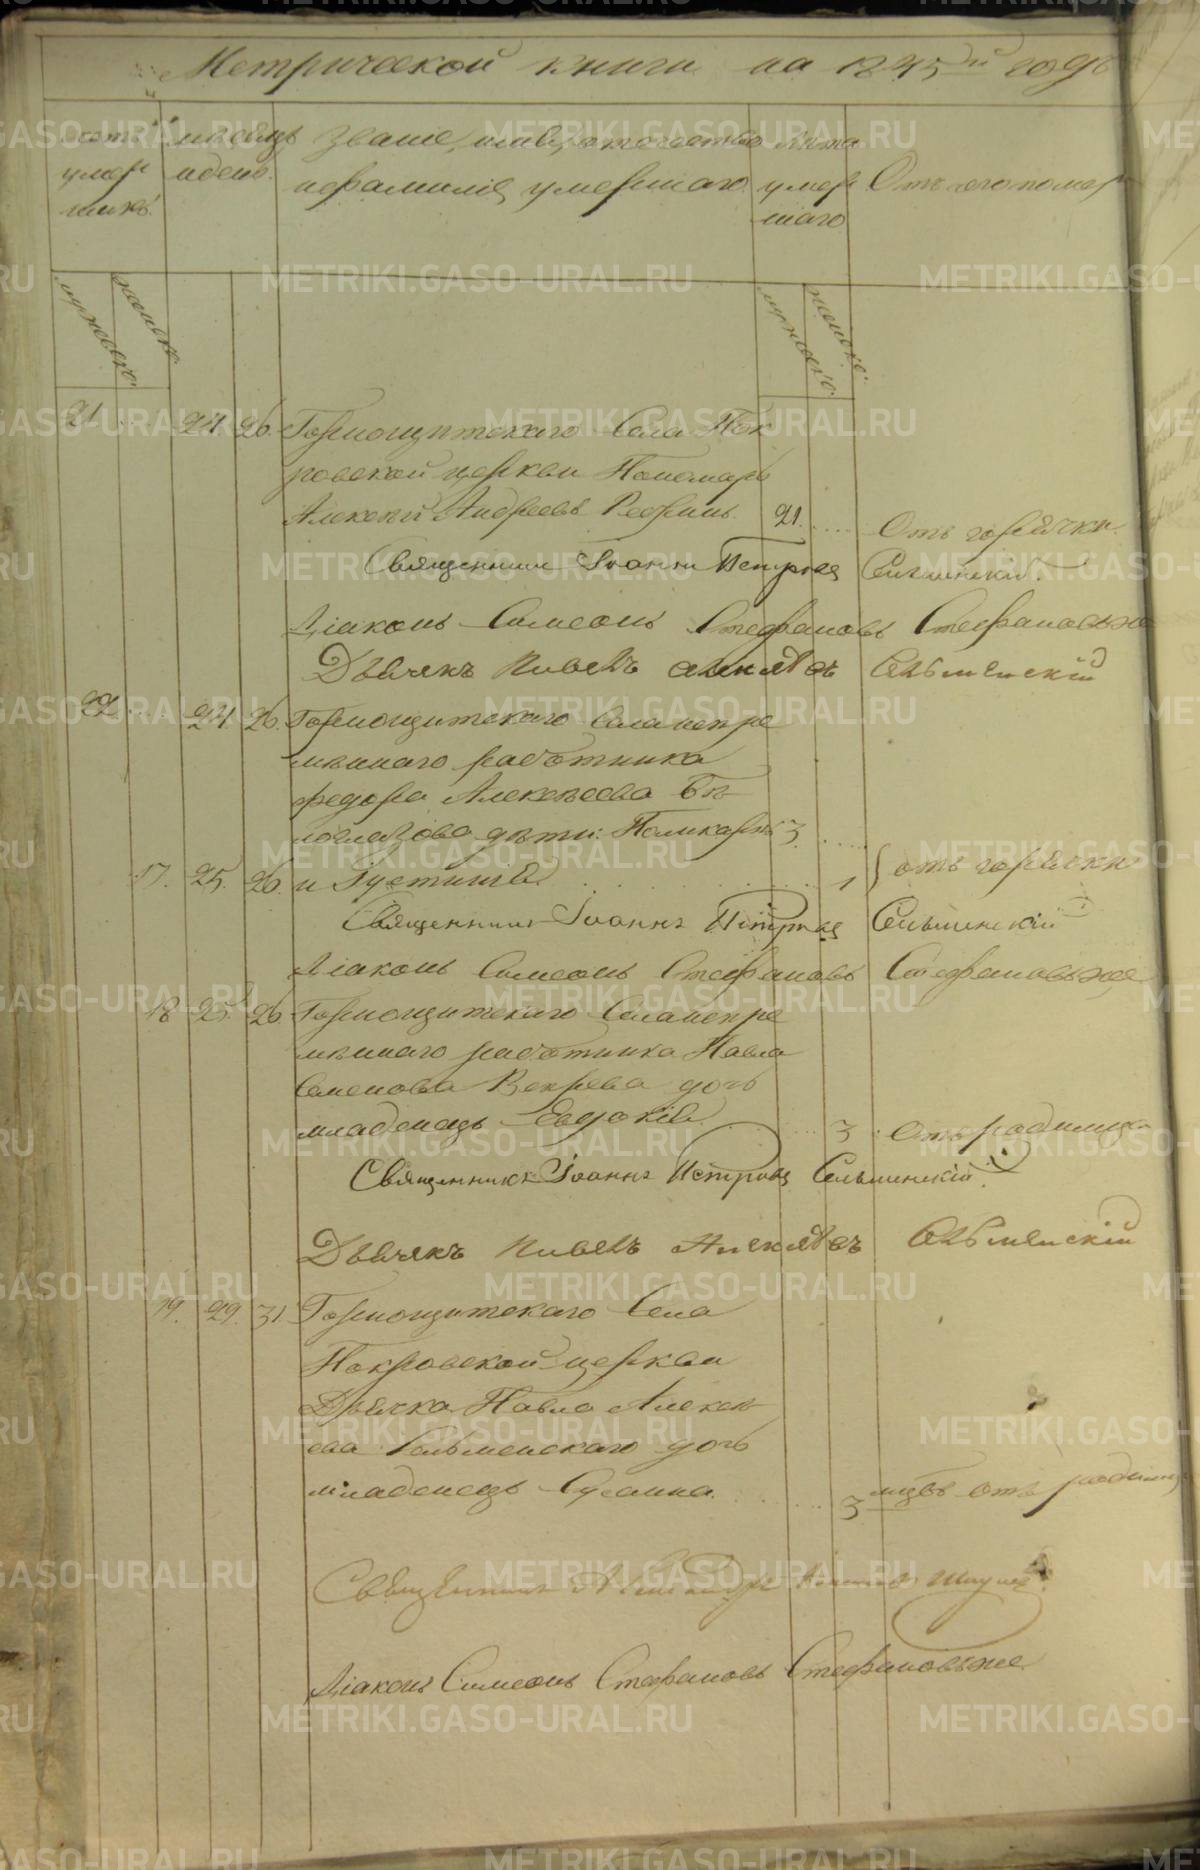 Метрической книги на 1845й годъ
счетъ умер шихъ.
мѣсяцъ и день.
Званіе, имя, отечество и фамилія умершаго
лѣта умер шаго
Отъ чего помер
мужеска. женска.
мужеска. женска.
21 .... 24 26 Горнощитскаго Села Пок
ровской церкви Пономарь
Алексѣй Андреевъ 21. .... Отъ горячки.
Священник Іоаннъ Петровъ Сельменскій.
Діаконъ Симеонъ Стефановъ Стефановъ же
Дьячекъ Павелъ Алексѣевъ Сельменскій
22 .... 24. 26. Горнощитскаго Села непре
мѣннаго работника
Федора Алексѣева Бѣ
логлазова дѣти: Поликарпъ 3 ....
17. 25. 26. и Густинія ........ 1 } отъ горячки
Священникъ Іоаннъ Петровъ Сельменскій
Діаконъ Симеонъ Стефановъ Стефановъ же
18 25. 26 Горнощитскаго Села непре
мѣннаго работника Павла
Семенова дочь
младенецъ Евдокія ...... 3 Отъ родимца
Священникъ Іоаннъ Петровъ Сельменскій.
Дьячекъ Павелъ Алексѣевъ Сельменскій
19. 29. 31. Горнощитскаго Села
Покровской церкви
Дьячка Павла Алексѣ
ева Сельменскаго дочь
младенецъ Сусанна. ...... 3 мцовъ отъ родимца
Священникъ Александръ
Діаконъ Симеонъ Стефановъ Стефановъ же
METRIKI.GASO-URAL.RU